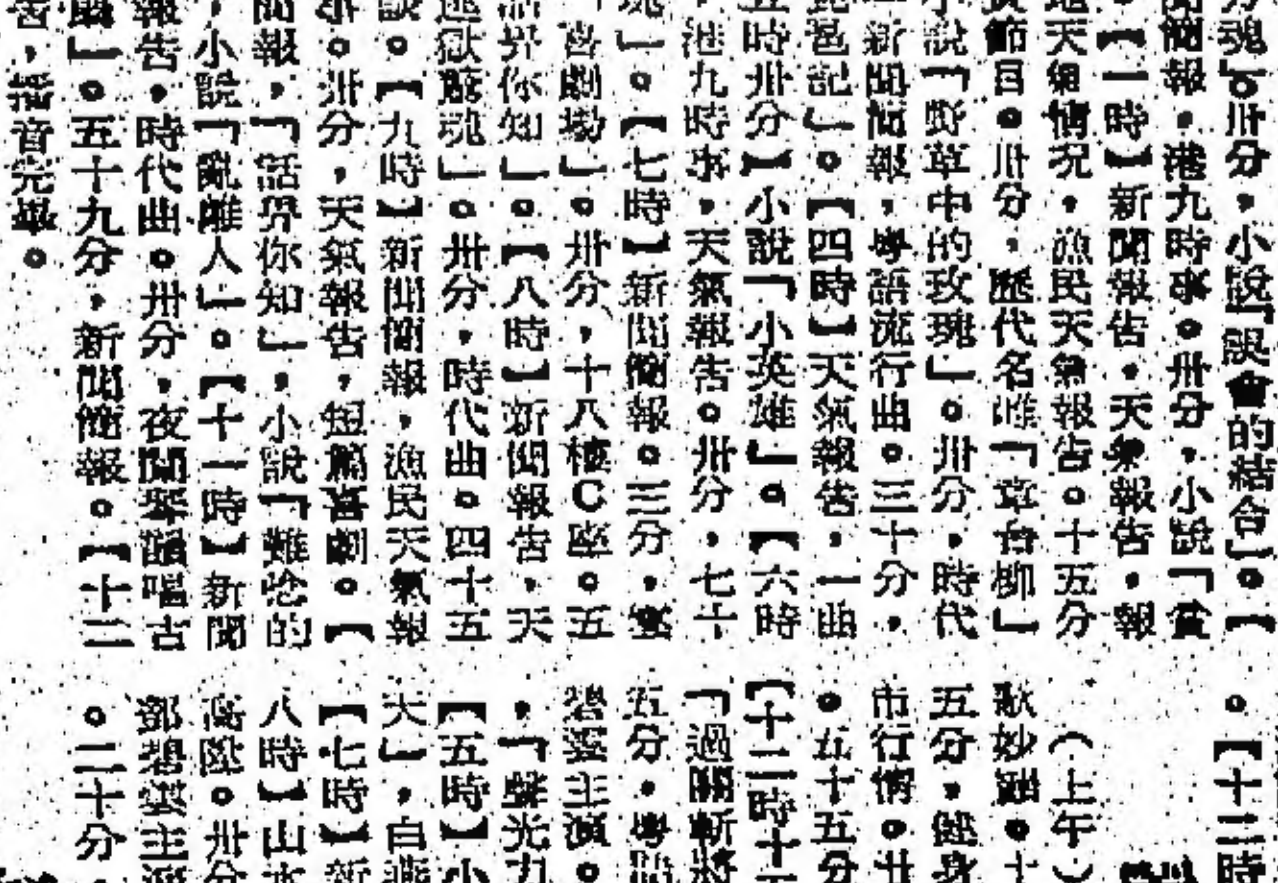 分魂」。卅分，小說「誤會的結合」。【
聞簡報，港九時事。卅分，小說「貧
。【一時】新聞報告，天氣報告，報
地天氣情况，漁民天氣報告。十五分
節目。卅分，歷代名姬「章台柳」
小說「野草中的玫瑰」。卅分，時代
新聞簡報，粵語流行曲。三十分，
琵邑記」。【四時】天氣報告，一曲
五時卅分】小說「小英雄」。【六時
港九時事，天氣報告。卅分，七十
」。【七時】新聞簡報。三分，
「喜劇場」。卅分，十八樓C座。五
話畀你知」。【八時】新聞報告，天
魂」。卅分，時代曲。四十五
。【九時】新聞簡報，漁民天氣報
。卅分，天氣報告，短篇喜劇。【
聞報，「話畀你知」，小說「難唸的
，小說「亂離人」。【十一時】新聞
報告，時代曲。卅分，夜闌琴韻唱古
」。五十九分，新聞簡報。【十二
告，播音完畢。
。【十二時
（上午）
歌妙韻。十
五分，健身
市行情。廿
。五十五分
【十二時十
「過關斬將
五分，粵
碧雲主演。
，「聲光力
【五時】小
大」，白燕
【七時】新
八時】山水
高陞。卅分
鄧碧雲主演
。二十分，